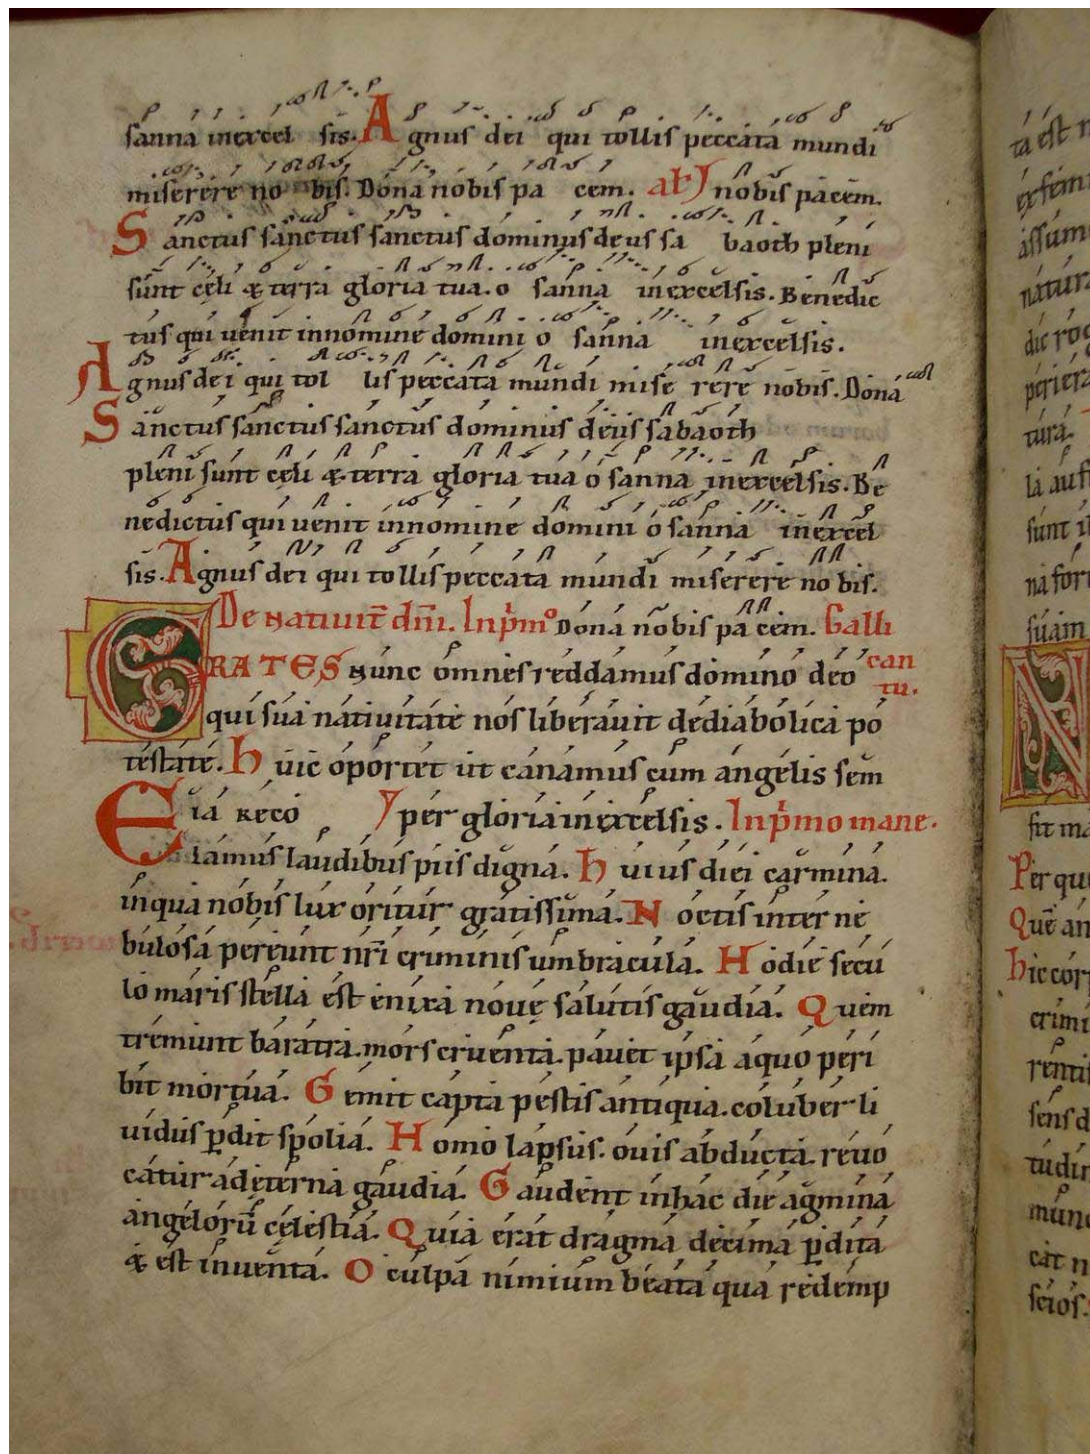 sanna inexcel sis. Agnus dei qui tollis peccata mundi
miserere no bis. Dona nobis pa cem. at) nobis pacem.
Sanctus sanctus sanctus dominus deus sa baoth pleni
sunt cęli & terra gloria tua. o sanna inexcelsis. Benedic
tus qui uenit innomine domini o sanna inexcelsis.
Agnus dei qui tol lis peccata mundi mise rere nobis. Dona
Sanctus sanctus sanctus dominus deus sabaoth
pleni sunt cęli & terra gloria tua o sanna inexcelsis. Be
nedictus qui uenit innomine domini o sanna inexcel
sis. Agnus dei qui tollis peccata mundi miserere no bis.
De natiuit̄ dn̄i. In pͥmo Dona nobis pa cem. Galli
GRATES Nunc omnes reddamus domino deo can
tu.
qui sua natiuitate nos liberauit dediabolica po
testate. Huic oportet ut canamus cum angelis sem
Eia reco per gloria inexcelsis. In pͥmo mane.
lamus laudibus piis digna. Huius diei carmina.
inqua nobis lux oritur gratissima. Noctis inter ne
bulosa pereunt nr̄i criminis umbracula. Hodie secu
lo maris stella est enixa nouę salutis gaudia. Quem
tremunt baratra. mors cruenta. pauet ipsa aquo peri
bit mortua. Gemit capta pestis antiqua. coluber li
uidus ꝑdit spolia. Homo lapsus. ouis abducta. reuo
catur ad eterna gaudia. Gaudent inhac die agmina
angelorū celestia. Quia erat dragma decima ꝑdita
& est inuenta. O culpa nimium beata qua redemp
ta est n
ex fem
assum
natur
dic rog
periera
tura.
la auf
sunt il
na for
suam
N
fit ma
Per que
Quē an
Hic corp
crimi
renti
sens d
tudin
mund
cat n
scios.